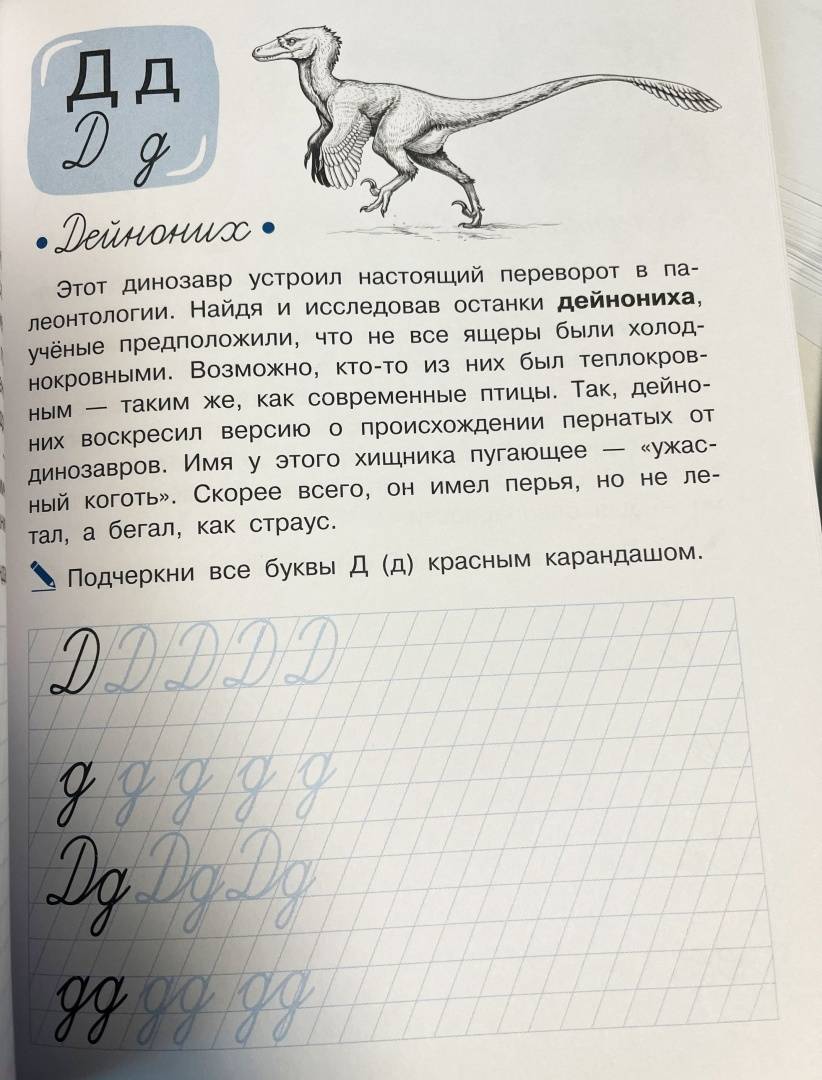 Д д
Д д
• Дейноних •
Этот динозавр устроил настоящий переворот в па-
леонтологии. Найдя и исследовав останки дейнониха,
учёные предположили, что не все ящеры были холод-
нокровными. Возможно, кто-то из них был теплокров-
ным — таким же, как современные птицы. Так, дейно-
них воскресил версию о происхождении пернатых от
динозавров. Имя у этого хищника пугающее — «ужас-
ный коготь». Скорее всего, он имел перья, но не ле-
тал, а бегал, как страус.
Подчеркни все буквы Д (д) красным карандашом.
Д Д Д Д Д
д д д д д
Дд Дд Дд
дд дд дд